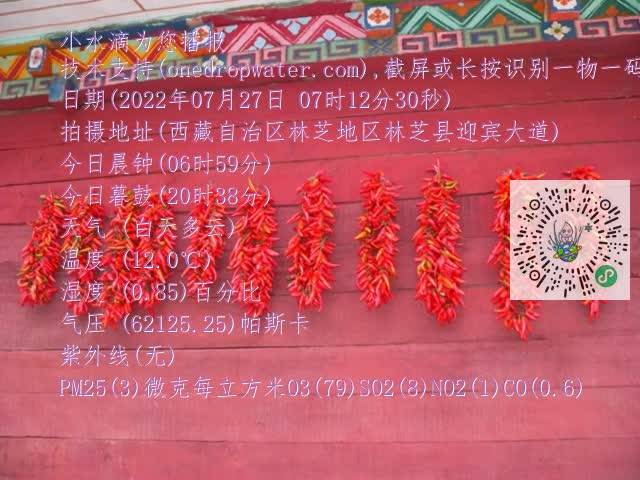 小水滴为您播报
技术支持(onedropwater.com),截屏或长按识别一物一码
日期(2022年07月27日 07时12分30秒)
拍摄地址(西藏自治区林芝地区林芝县迎宾大道)
今日晨钟(06时59分)
今日暮鼓(20时38分)
天气 (白天多云)
温度 (12.0℃)
湿度 (0.85)百分比
气压 (62125.25)帕斯卡
紫外线(无)
PM25(3)微克每立方米O3(79)SO2(8)NO2(1)CO(0.6)